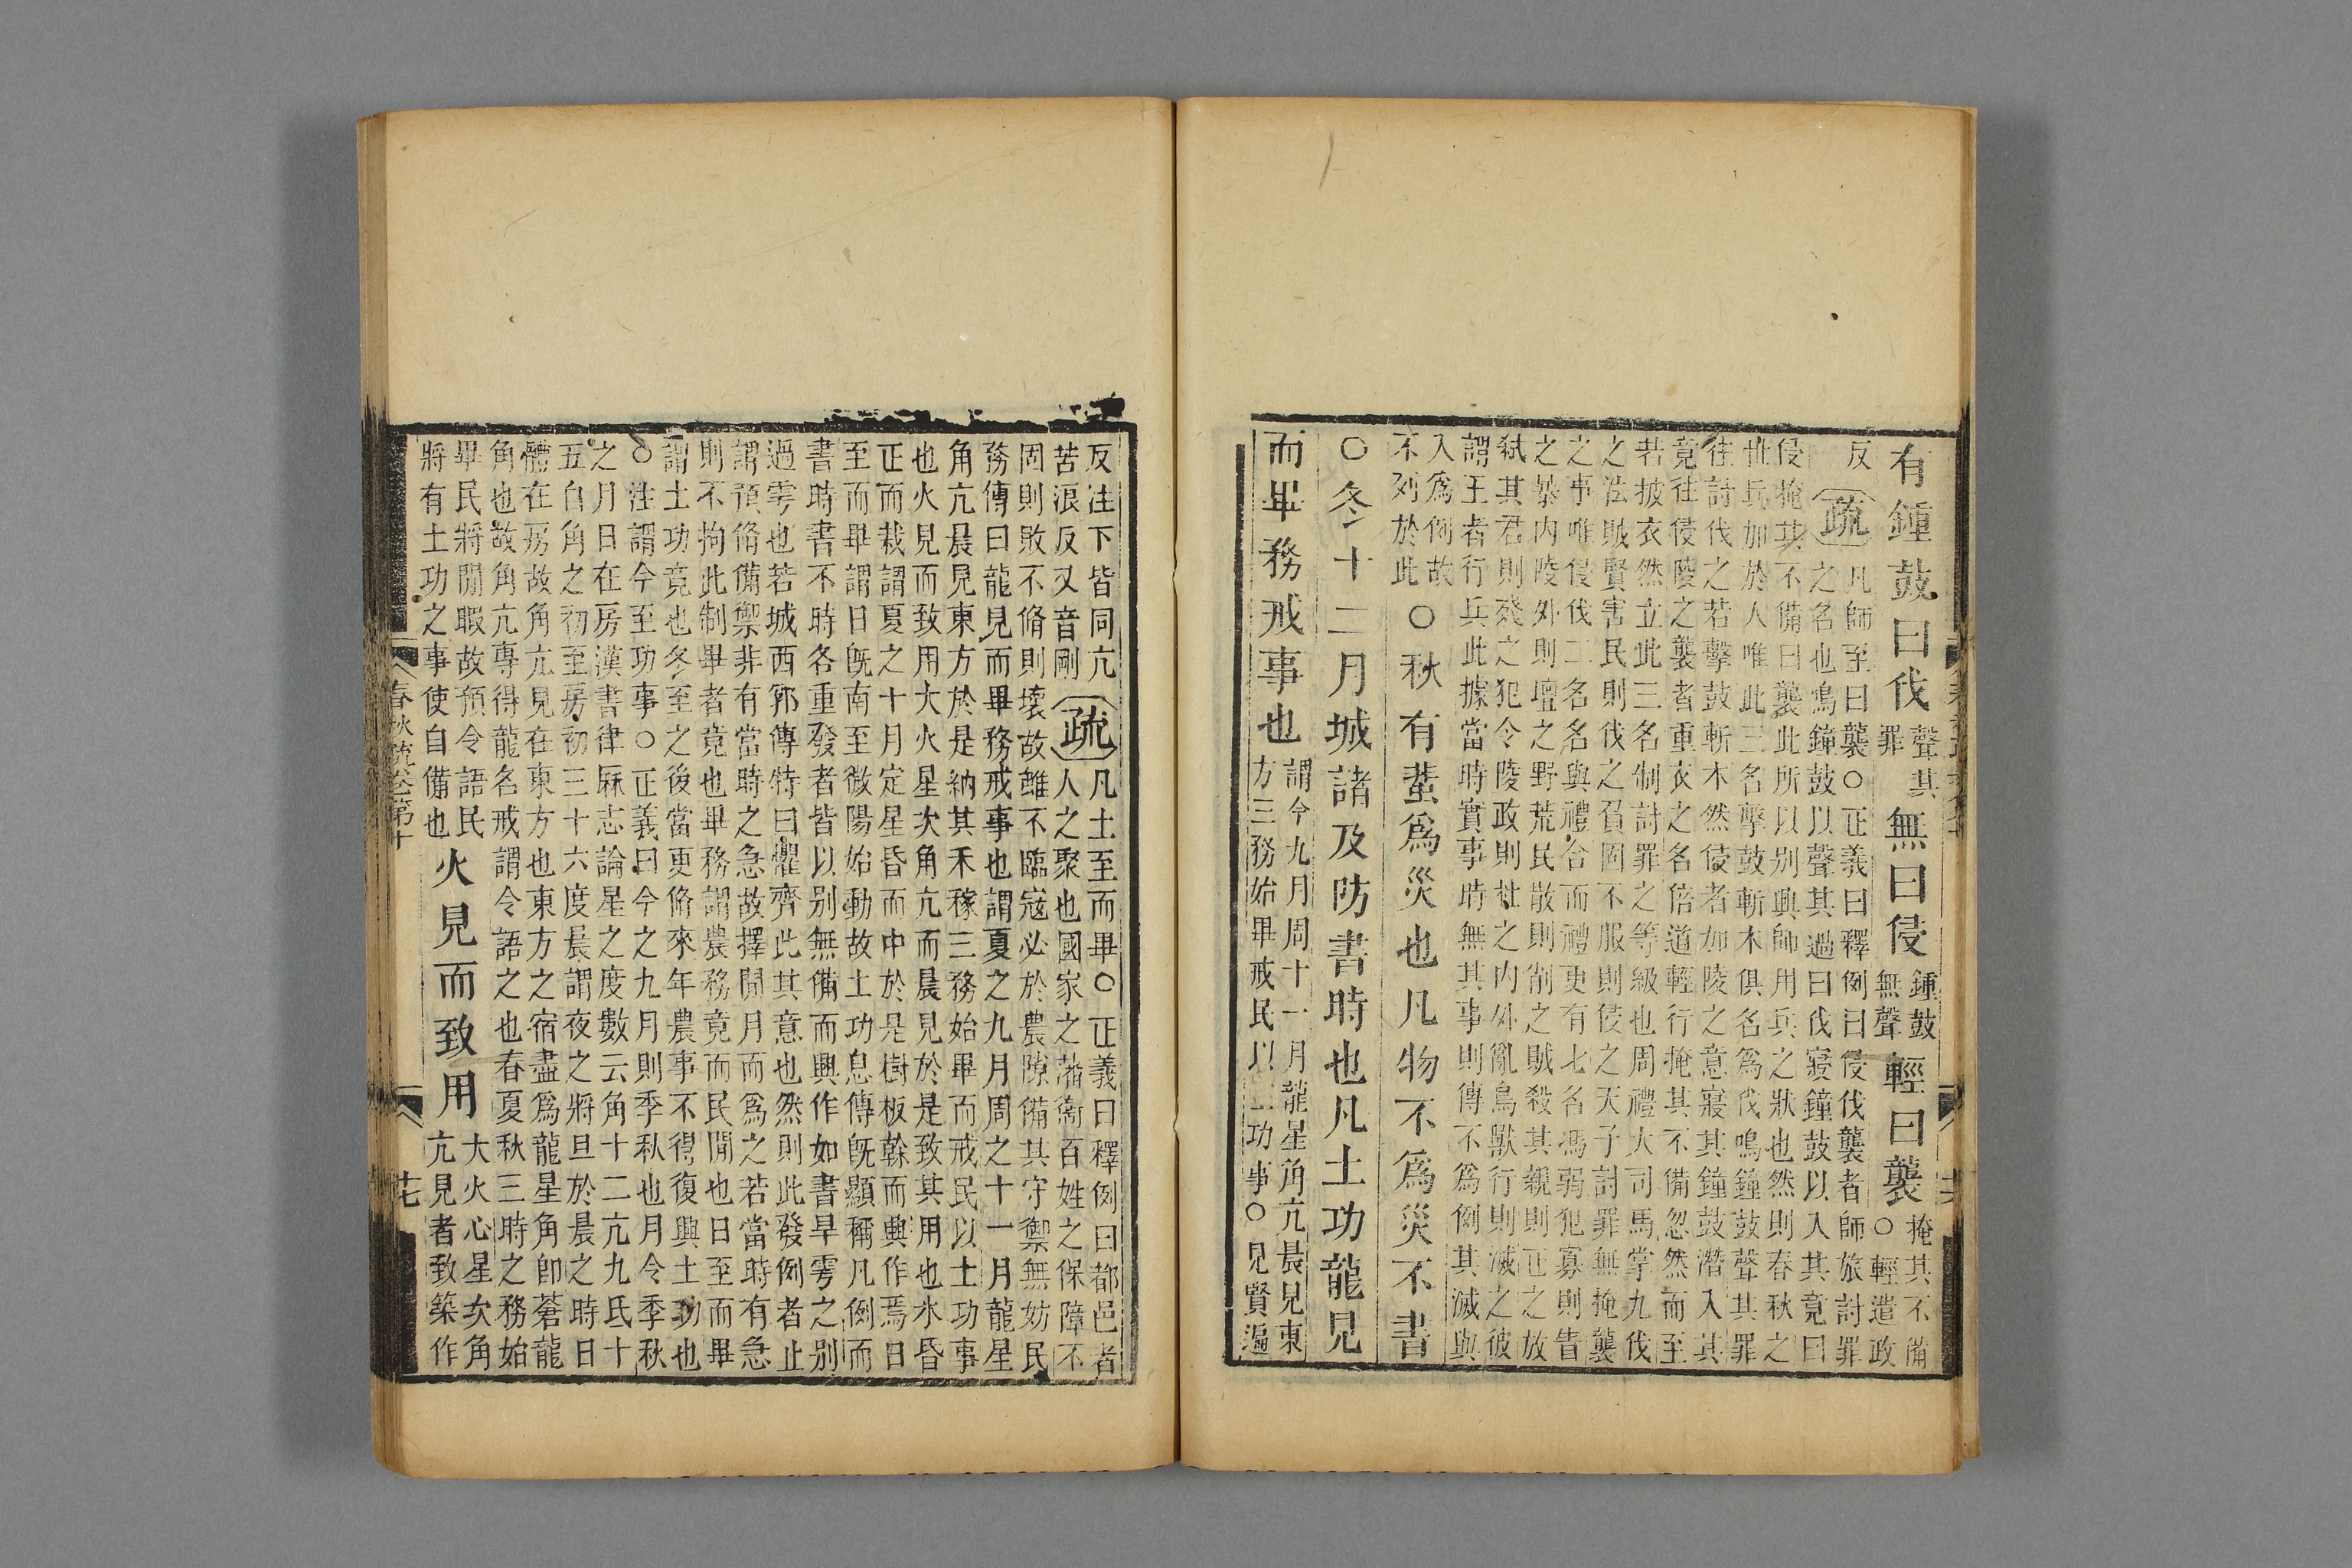 有鍾鼓曰伐聲其罪無曰侵鍾鼓無聲輕曰襲掩其不備○輕遣政
反疏凡師至曰襲○正義曰釋例曰侵伐襲者師旅討罪
之名也鳴鐘鼓以聲其過曰伐寢鐘鼓以入其竟曰
侵掩其不備曰襲此所以別興師用兵之狀也然則春秋之
世兵加於人唯此三名擊鼓斬木俱名爲伐鳴鐘鼓聲其罪
往討伐之若擊鼓斬木然侵者加陵之意寢其鐘鼓潛入其
竟往侵陵之襲者重衣之名倍道輕行掩其不備忽然而至
若披衣然立此三名制討罪之等級也周禮大司馬掌九伐
之法賊賢害民則伐之負固不服則侵之天子討罪無掩襲
之事唯侵伐二名名與禮合而禮更有七名馮弱犯寡則眚
之暴內陵外則壇之野荒民散則削之賊殺其親則正之放
弒其君則殘之犯令陵政則杜之內外亂鳥獸行則滅之彼
謂王者行兵此據當時實事時無其事則傳不爲例其滅與
入爲例故
不列於此○秋有蜚爲災也凡物不爲災不書
○冬十二月城諸及防書時也凡土功龍見
而畢務戒事也謂今九月周十一月龍星角亢晨見東
方三務始畢戒民以土功事○見賢遍
反注下皆同亢
苦浪反又音剛疏凡土至而畢○正義曰釋例曰都邑者
人之聚也國家之藩衞百姓之保障不
固則敗不脩則壞故雖不臨寇必於農隙備其守禦無妨民
務傳曰龍見而畢務戒事也謂夏之九月周之十一月龍星
角亢晨見東方於是納其禾稼三務始畢而戒民以土功事
也火見而致用大火星次角亢而晨見於是致其用也水昏
正而栽謂夏之十月定星昏而中於是樹板榦而興作焉日
至而畢謂日旣南至微陽始動故土功息傳旣顯稱凡例而
書時書不時各重發者皆以別無備而興作如書旱雩之別
過雩也若城西郛傳特曰懼齊此其意也然則此發例者止
謂預脩備禦非有當時之急故擇閒月而爲之若當時有急
則不拘此制畢者竟也畢務謂農務竟而民閒也日至而畢
謂土功竟也冬至之後當更脩來年農事不得復興土功也
○注謂今至功事○正義曰今之九月則季秋也月令季秋
之月日在房漢書律厤志論星之度數云角十二亢九氐十
五自角之初至房初三十六度晨謂夜之將旦於晨之時日
體在房故角亢見在東方也東方之宿盡爲龍星角卽蒼龍
角也故角亢專得龍名戒謂令語之也春夏秋三時之務始
畢民將閒暇故預令語民
將有土功之事使自備也火見而致用大火心星次角
亢見者致築作
春秋疏卷第十
十七